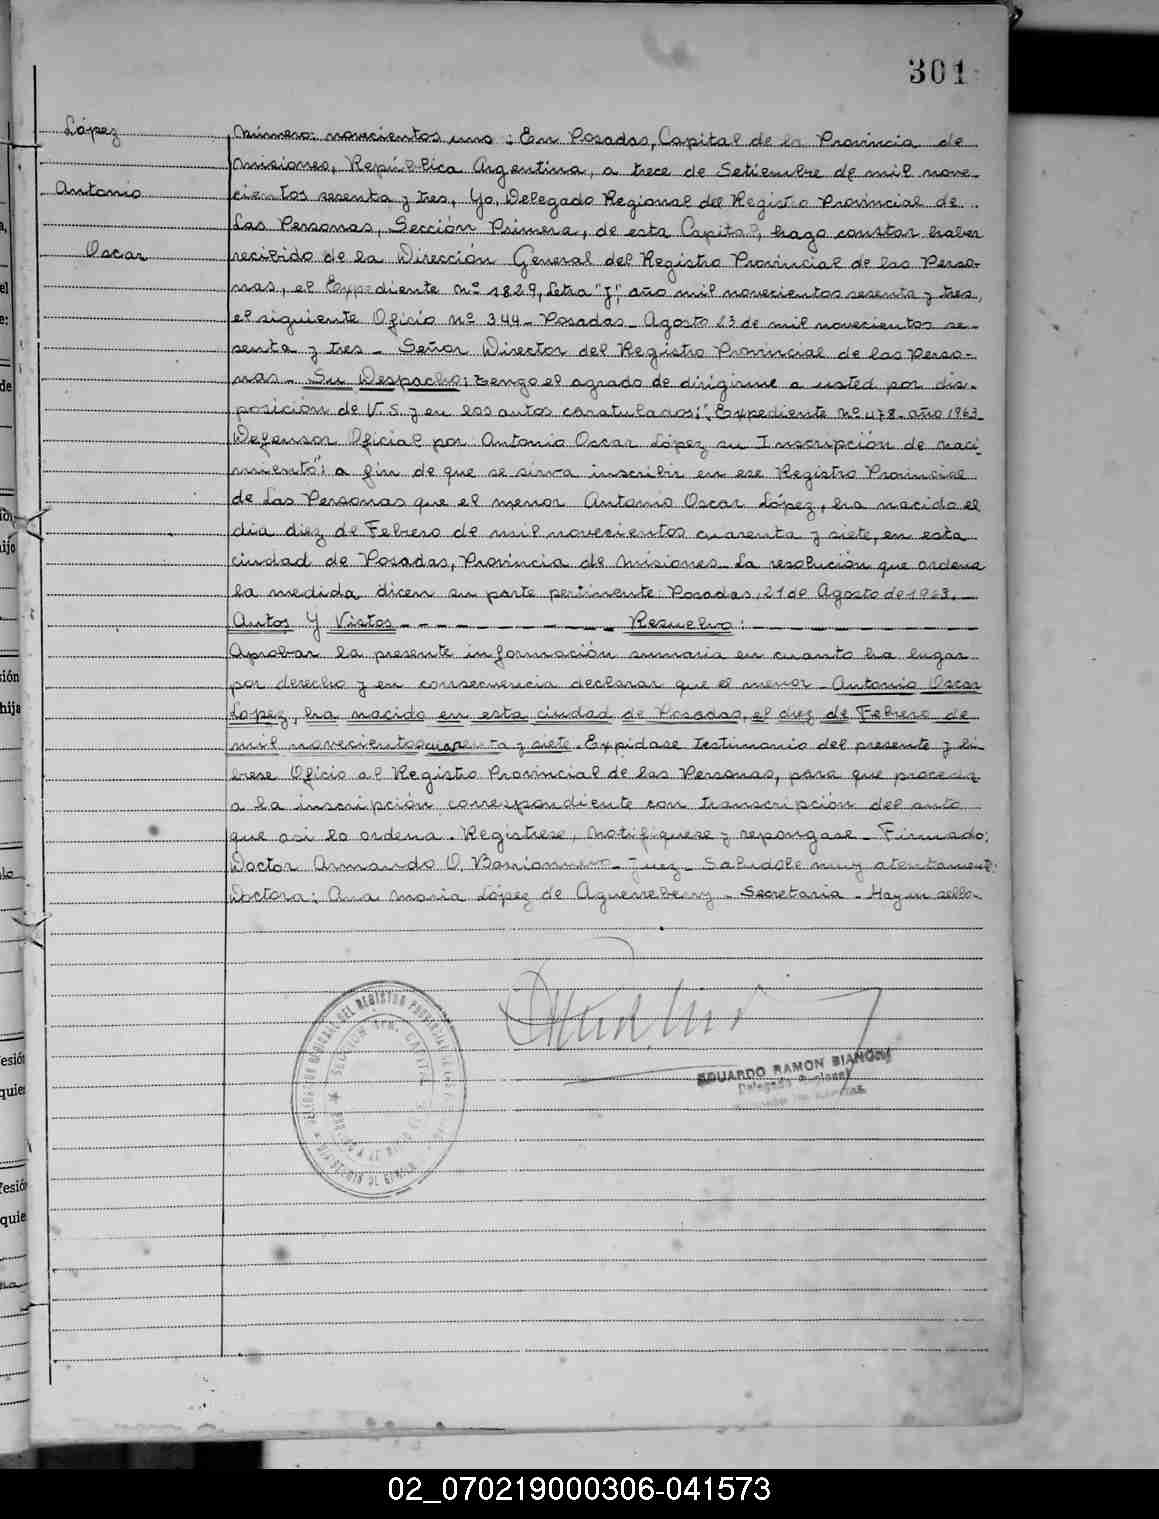 301
López
Antonio
Oscar
Número: novecientos uno: En Posadas, Capital de la Provincia de
Misiones, República Argentina, a trece de Setiembre de mil nove-
cientos sesenta y tres, Yo, Delegado Regional del Registro Provincial de
Las Personas, Sección Primera, de esta Capital, hago constar haber
recibido de la Dirección General del Registro Provincial de las Perso-
nas, el Expediente Nº 1829, Letra "J", año mil novecientos sesenta y tres,
el siguiente Oficio Nº 344 - Posadas - Agosto 23 de mil novecientos se-
senta y tres - Señor Director del Registro Provincial de las Perso-
nas - Su Despacho: Tengo el agrado de dirigirme a usted por dis-
posición de V.S. y en los autos caratulados: "Expediente Nº 478 - año 1963
Defensor Oficial por Antonio Oscar López su Inscripción de naci-
miento": a fin de que se sirva inscribir en ese Registro Provincial
de Las Personas que el menor Antonio Oscar López, ha nacido el
día diez de Febrero de mil novecientos cuarenta y siete, en esta
ciudad de Posadas, Provincia de Misiones - La resolución que ordena
la medida dicen en su parte pertinente: Posadas, 21 de Agosto de 1963. -
Autos Y Vistos - - - - - - - - - Resuelvo: - - - - - - - -
Aprobar la presente información sumaria en cuanto ha lugar
por derecho y en consecuencia declarar que el menor - Antonio Oscar
López, ha nacido en esta ciudad de Posadas, el diez de Febrero de
mil novecientos cuarenta y siete - Expídase Testimonio del presente y lí-
brese Oficio al Registro Provincial de las Personas, para que proceda
a la inscripción correspondiente con transcripción del auto
que así lo ordena. Regístrese, Notifíquese y repóngase - Firmado:
Doctor Armando O. - Juez - Salúdole muy atentamente:
Doctora: Ana María López de Aguerreberry - Secretaria - Hay un sello -
EDUARDO RAMON BIANCHI
Delegado Regional
SECCION 1ra. CAPITAL
02_070219000306-041573